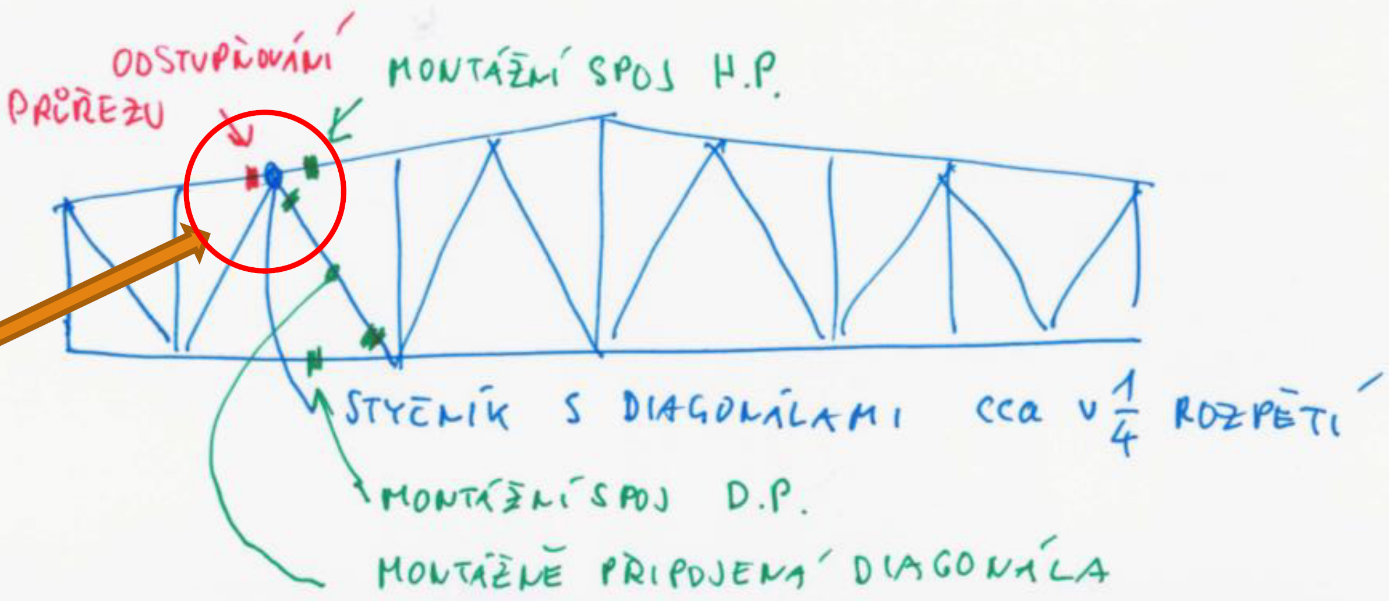 ODSTUPŇOVÁNÍ
PRŮŘEZU
MONTÁŽNÍ SPOJ H.P.
STYČNÍK S DIAGONÁLAMI cca v 1/4 ROZPĚTÍ
MONTÁŽNÍ SPOJ D.P.
MONTÁŽNĚ PŘIPOJENÁ DIAGONÁLA